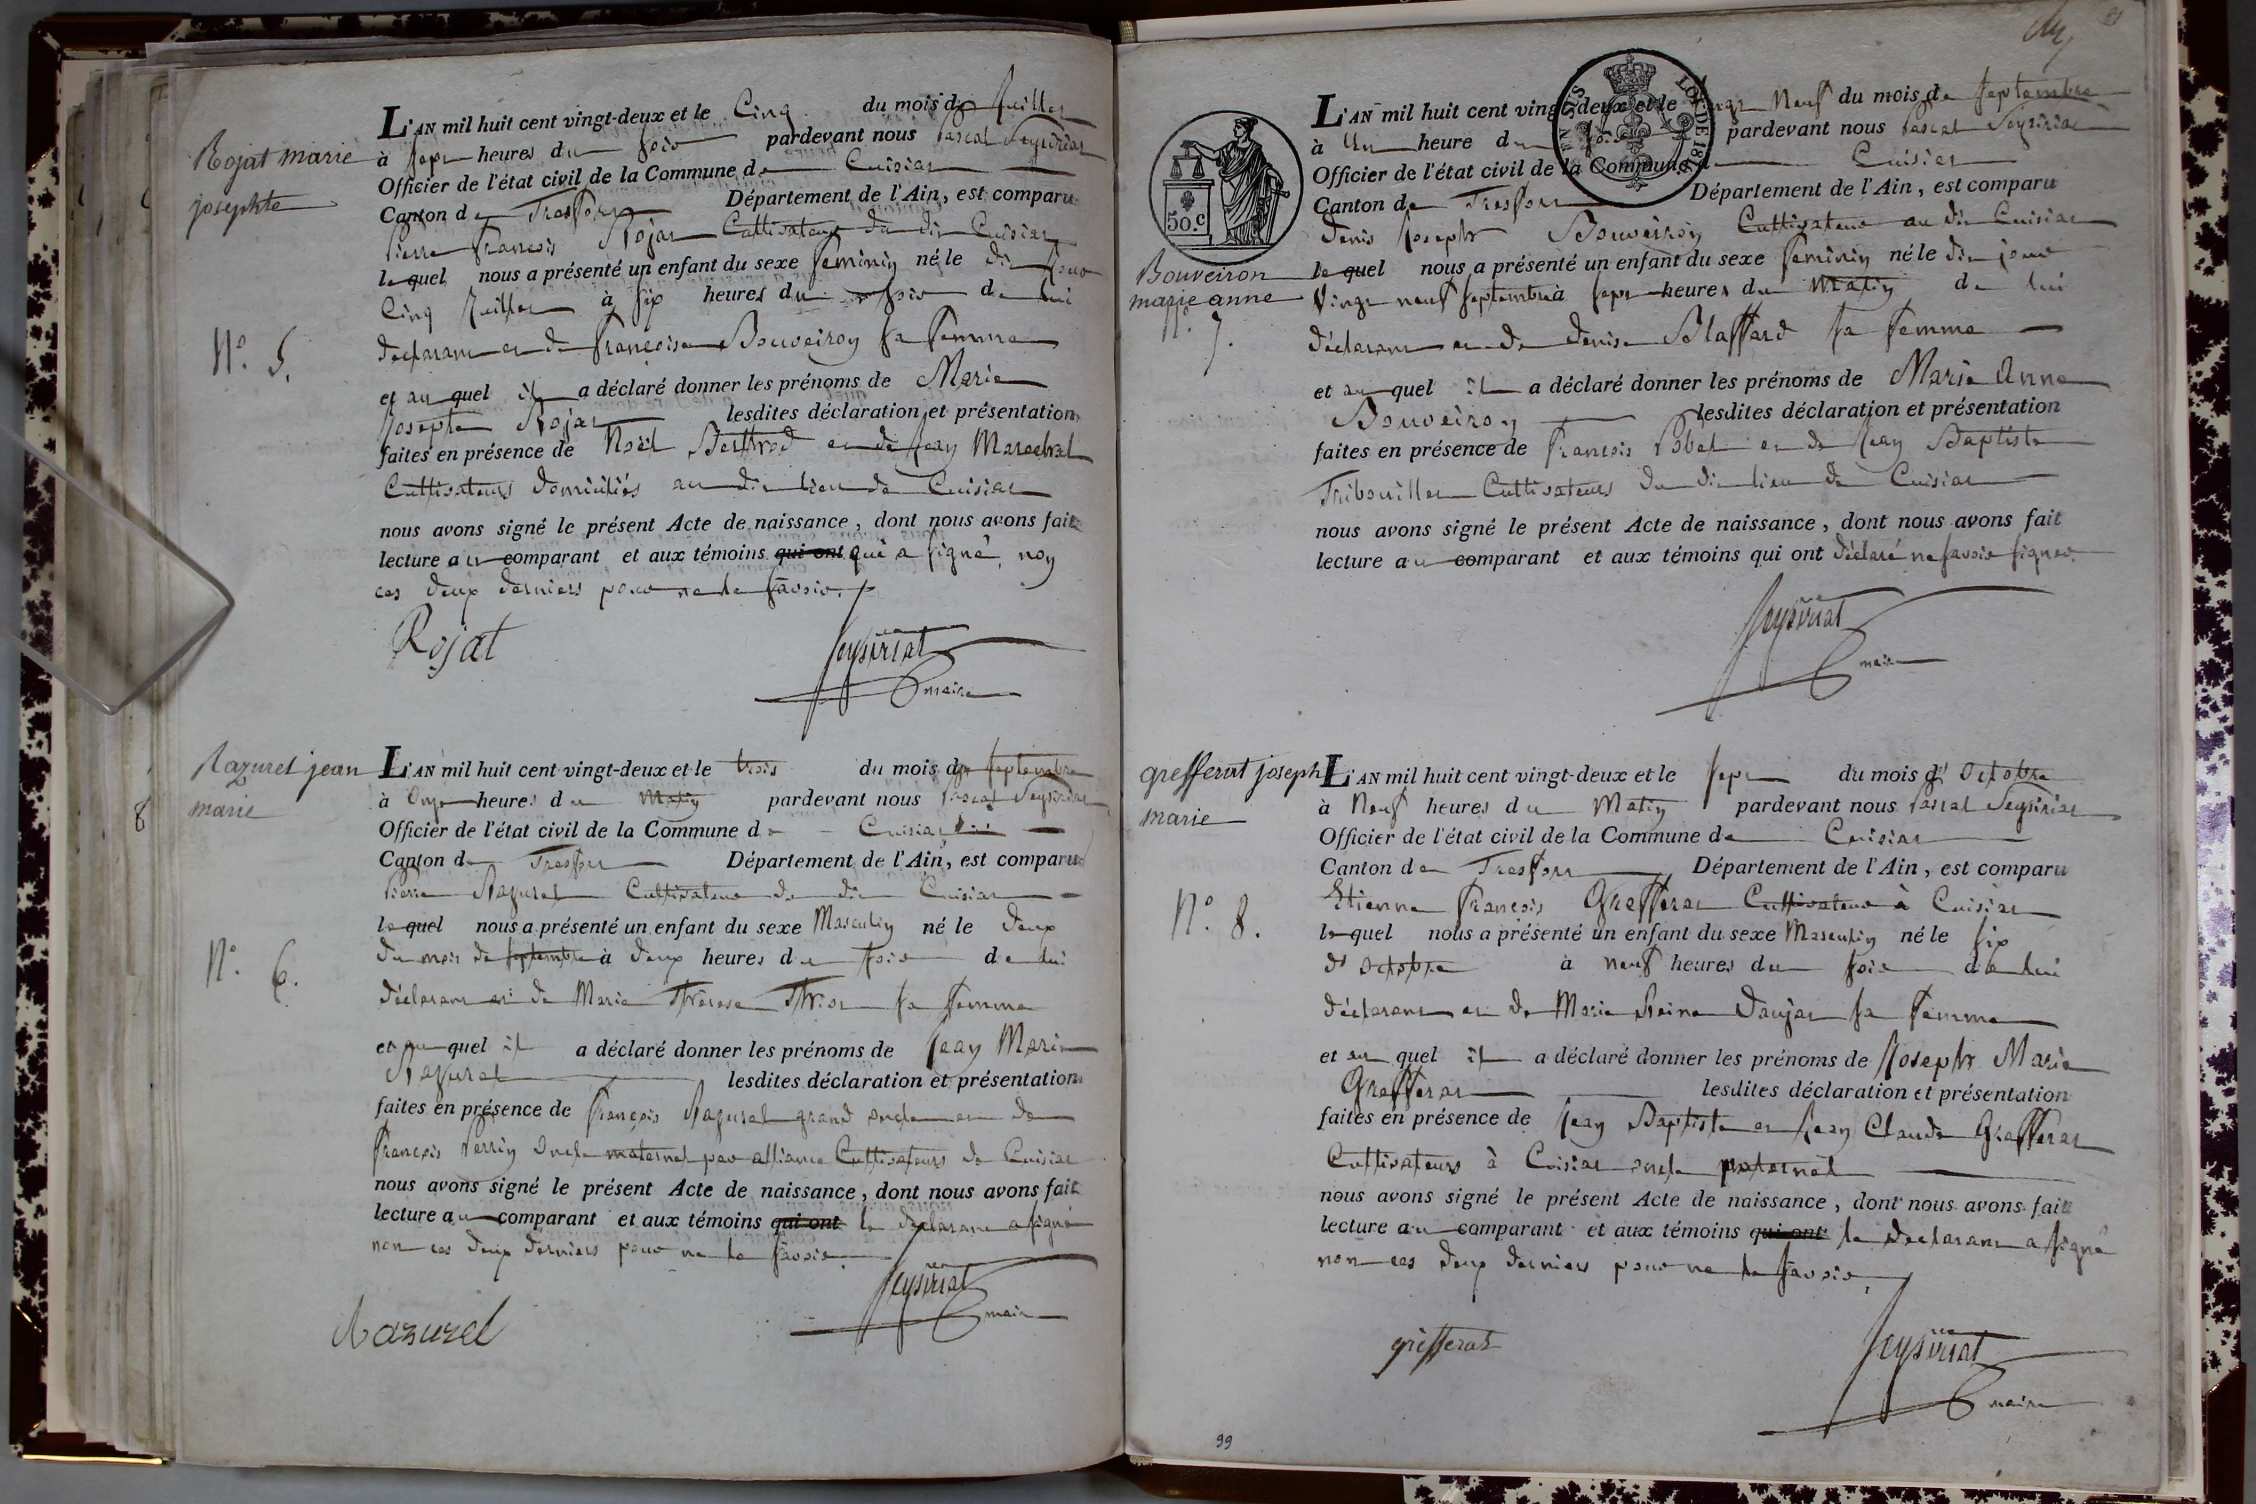 Rojat marie
josephte
N.° 5.
L'AN mil huit cent vingt-deux et le Cinq du mois de Juillet
à sept heures du soir pardevant nous Pascal Seysiriat
Officier de l'état civil de la Commune de Cuisiat
Canton de Treffort Département de l'Ain, est comparu
Pierre François Rojat Cultivateur du dit Cuisiat
lequel nous a présenté un enfant du sexe feminin né le dit jour
Cinq Juillet à six heures du soir de lui
declarant et de Françoise Bouveiron sa femme
et au quel il a déclaré donner les prénoms de Marie
Josephte Rojat lesdites déclaration et présentation
faites en présence de Noël Berthod et de Jean Marechal
Cultivateurs domiciliés au dit lieu de Cuisiat
nous avons signé le présent Acte de naissance, dont nous avons fait
lecture au comparant et aux témoins qui ont qui a signé, non
ces deux derniers pour ne le savoir.
Rojat
Seysiriat
maire
Razurel jean
marie
8
N.° 6.
L'AN mil huit cent vingt-deux et le trois du mois de Septembre
à Onze heures du Matin pardevant nous Pascal Seysiriat
Officier de l'état civil de la Commune de Cuisiat
Canton de Treffort Département de l'Ain, est comparu
Pierre Razurel Cultivateur du dit Cuisiat
lequel nous a présenté un enfant du sexe Masculin né le deux
du mois de Septembre à deux heures du soir de lui
déclarant et de Marie Thérese sa femme
et au quel il a déclaré donner les prénoms de Jean Marie
Razurel lesdites déclaration et présentation
faites en présence de François Razurel grand oncle et de
François Perrin Oncle maternel par alliance Cultivateurs de Cuisiat
nous avons signé le présent Acte de naissance, dont nous avons fait
lecture au comparant et aux témoins qui ont le declarant a signé
non ces deux derniers pour ne le savoir.
Seysiriat
maire
Razurel
81
50.c
LOI DE 1816
Bouveiron
marie anne
N.° 7.
L'AN mil huit cent vingt-deux et le vingt Neuf du mois de Septembre
à Un heure du soir pardevant nous Pascal Seysiriat
Officier de l'état civil de la Commune de Cuisiat
Canton de Treffort Département de l'Ain, est comparu
Denis Joseph Bouveiron Cultivateur au dit Cuisiat
lequel nous a présenté un enfant du sexe feminin né le dit jour
Vingt neuf Septembre à sept heures du Matin de lui
déclarant et de Denise Blaffard sa femme
et au quel il a déclaré donner les prénoms de Marie Anne
Bouveiron lesdites déclaration et présentation
faites en présence de François Pobel et de Jean Baptiste
Tribouillet Cultivateurs du dit lieu de Cuisiat
nous avons signé le présent Acte de naissance, dont nous avons fait
lecture au comparant et aux témoins qui ont déclaré ne savoir signer.
Seysiriat
maire
grefferat joseph
marie
N.° 8.
L'AN mil huit cent vingt-deux et le sept du mois d'Octobre
à Neuf heures du Matin pardevant nous Pascal Seysiriat
Officier de l'état civil de la Commune de Cuisiat
Canton de Treffort Département de l'Ain, est comparu
Etienne François Grefferat Cultivateur à Cuisiat
lequel nous a présenté un enfant du sexe Masculin né le six
d'Octobre à neuf heures du soir de lui
déclarant et de Marie Reine Daujat sa femme
et au quel il a déclaré donner les prénoms de Joseph Marie
Grefferat lesdites déclaration et présentation
faites en présence de Jean Baptiste et Jean Claude Grefferat
Cultivateurs à Cuisiat oncle paternel
nous avons signé le présent Acte de naissance, dont nous avons fait
lecture au comparant et aux témoins qui ont le declarant a signé
non ces deux derniers pour ne le savoir.
grefferat
Seysiriat
maire
99